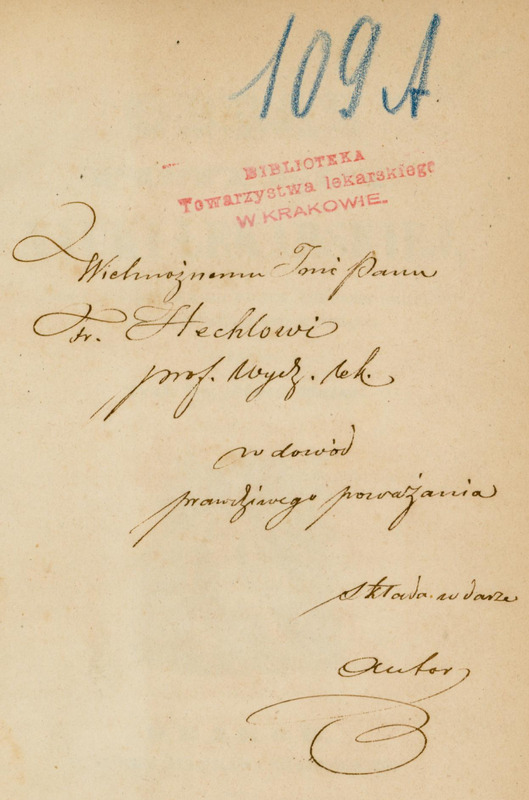 109 A
BIBLIOTEKA
Towarzystwa lekarskiego
W KRAKOWIE.
Wielmożnemu Jmć Panu
Fr. Stechlowi
prof. Wydz. lek.
w dowód
prawdziwego poważania
składa w darze
autor